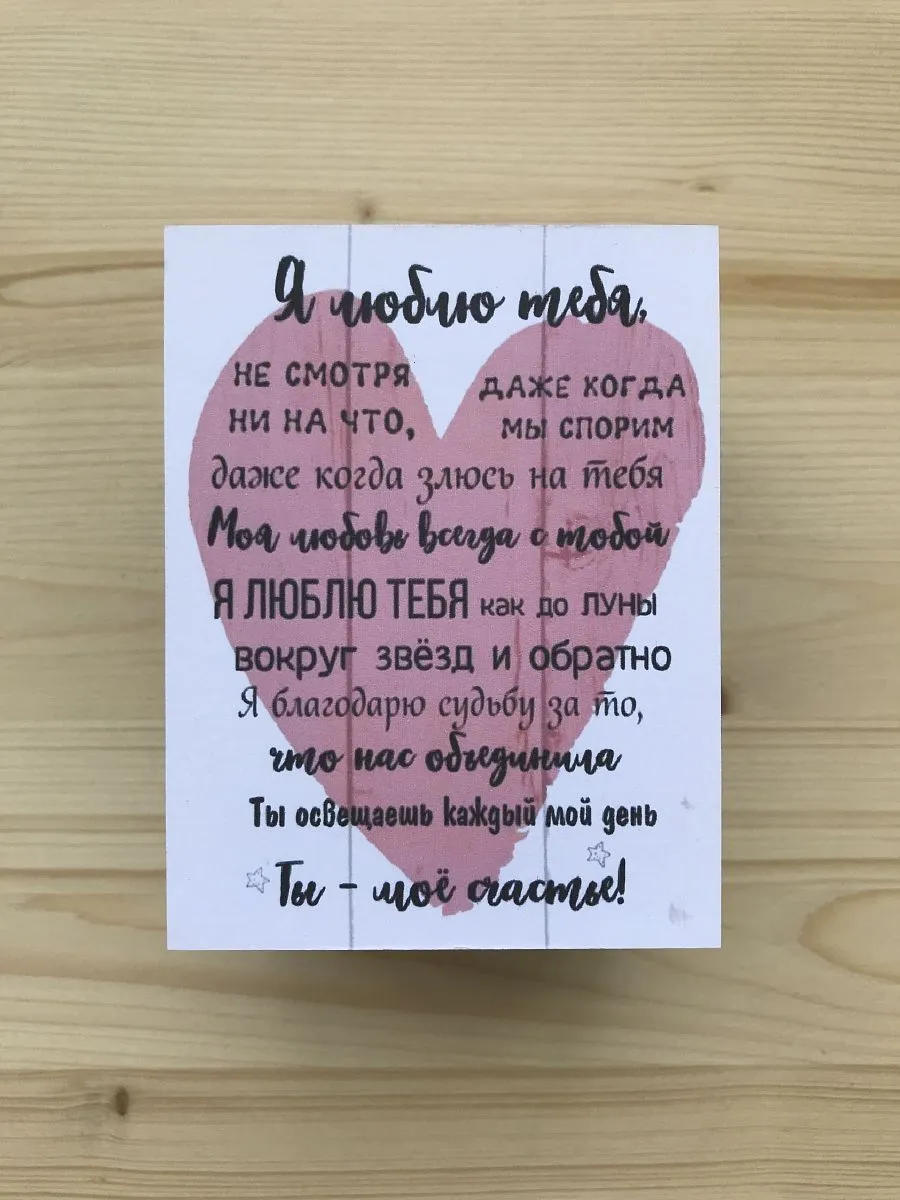 Я люблю тебя,
НЕ СМОТРЯ
НИ НА ЧТО,
ДАЖЕ КОГДА
МЫ СПОРИМ
даже когда злюсь на тебя
Моя любовь всегда с тобой
Я ЛЮБЛЮ ТЕБЯ как до луны
вокруг звёзд и обратно
Я благодарю судьбу за то,
что нас объединила
Ты освещаешь каждый мой день
Ты - моё счастье!